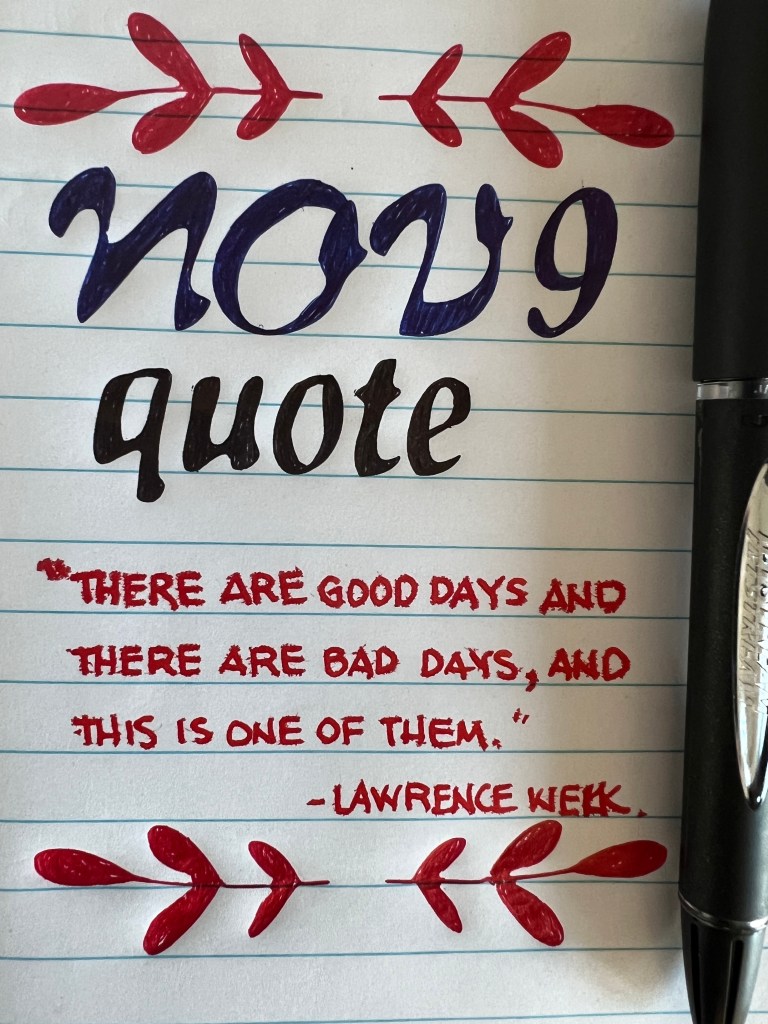 nov 9
quote
"THERE ARE GOOD DAYS AND
THERE ARE BAD DAYS, AND
THIS IS ONE OF THEM."
-LAWRENCE WELK.